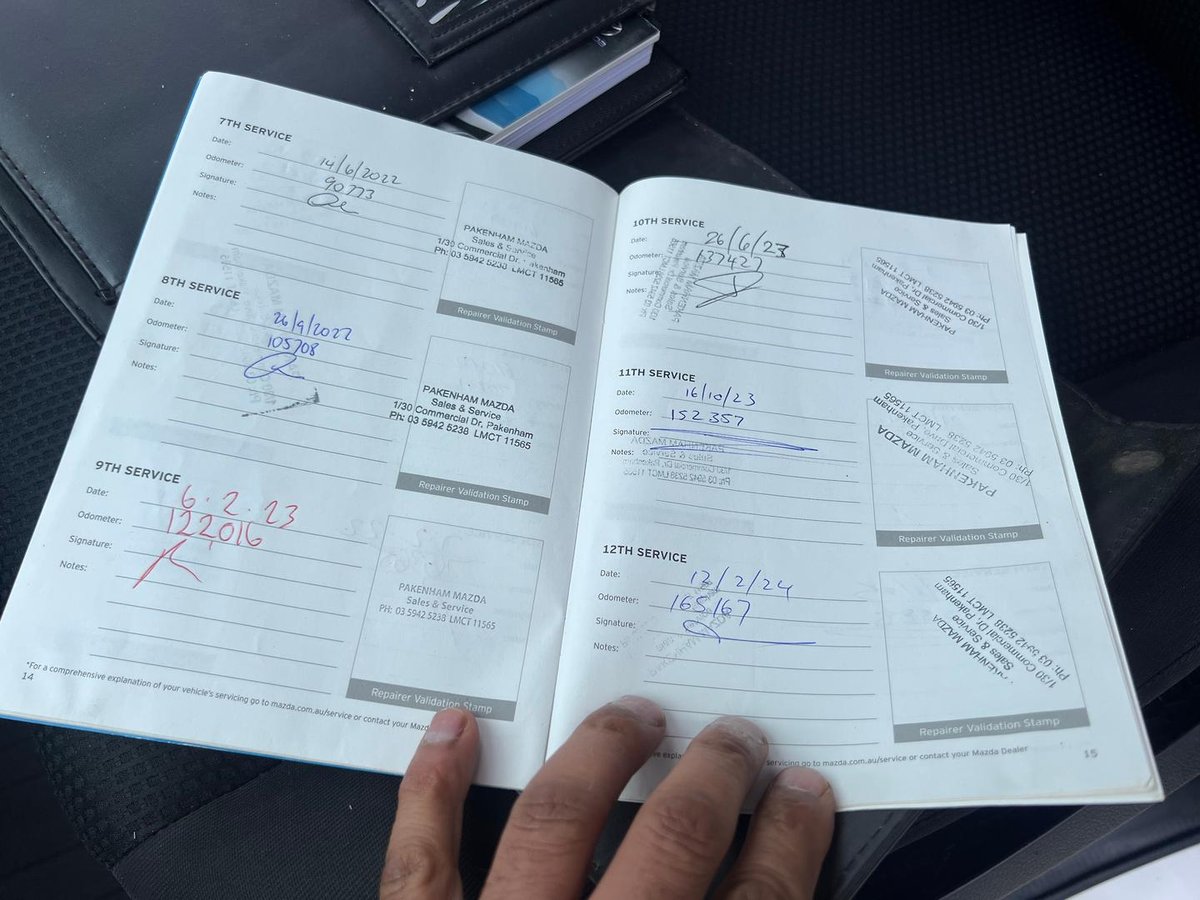 7TH SERVICE
Date: 14/6/2022
Odometer: 90773
Signature:
Notes:
PAKENHAM MAZDA
Sales & Service
1/30 Commercial Dr, Pakenham
Ph: 03 5942 5238 LMCT 11565
Repairer Validation Stamp
8TH SERVICE
Date: 26/9/2022
Odometer: 105708
Signature:
Notes:
PAKENHAM MAZDA
Sales & Service
1/30 Commercial Dr, Pakenham
Ph: 03 5942 5238 LMCT 11565
Repairer Validation Stamp
9TH SERVICE
Date: 6.2.23
Odometer: 122016
Signature:
Notes:
PAKENHAM MAZDA
Sales & Service
PH: 03 5942 5238 LMCT 11565
Repairer Validation Stamp
*For a comprehensive explanation of your vehicle's servicing go to mazda.com.au/service or contact your
14
10TH SERVICE
Date: 26/6/23
Odometer: 137427
Signature:
Notes:
PAKENHAM MAZDA
Sales & Service
1/30 Commercial Dr, Pakenham
Ph: 03 5942 5238 LMCT 11565
Repairer Validation Stamp
11TH SERVICE
Date: 16/10/23
Odometer: 152357
Signature:
Notes:
PAKENHAM MAZDA
Sales & Service
1/30 Commercial Drive, Pakenham
Ph: 03 5942 5238 LMCT 11565
Repairer Validation Stamp
12TH SERVICE
Date: 12/2/24
Odometer: 165167
Signature:
Notes:
MAZDA
Sales & Service
1/30 Commercial Dr, Pakenham
Ph: 03 5942 5238 LMCT 11565
Repairer Validation Stamp
servicing go to mazda.com.au/service or contact your Mazda Dealer
15